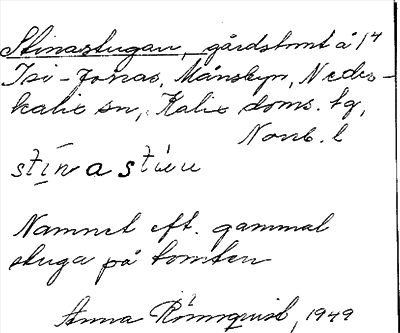 Stinastugan, gårdstomt å 1⁴
Isi-Jonas, Månsbyn, Neder-
kalix sn, Kalix doms. tg,
Norrb. l
Namnet eft. gammal
stuga på tomten
Anna Rönnquist, 1949